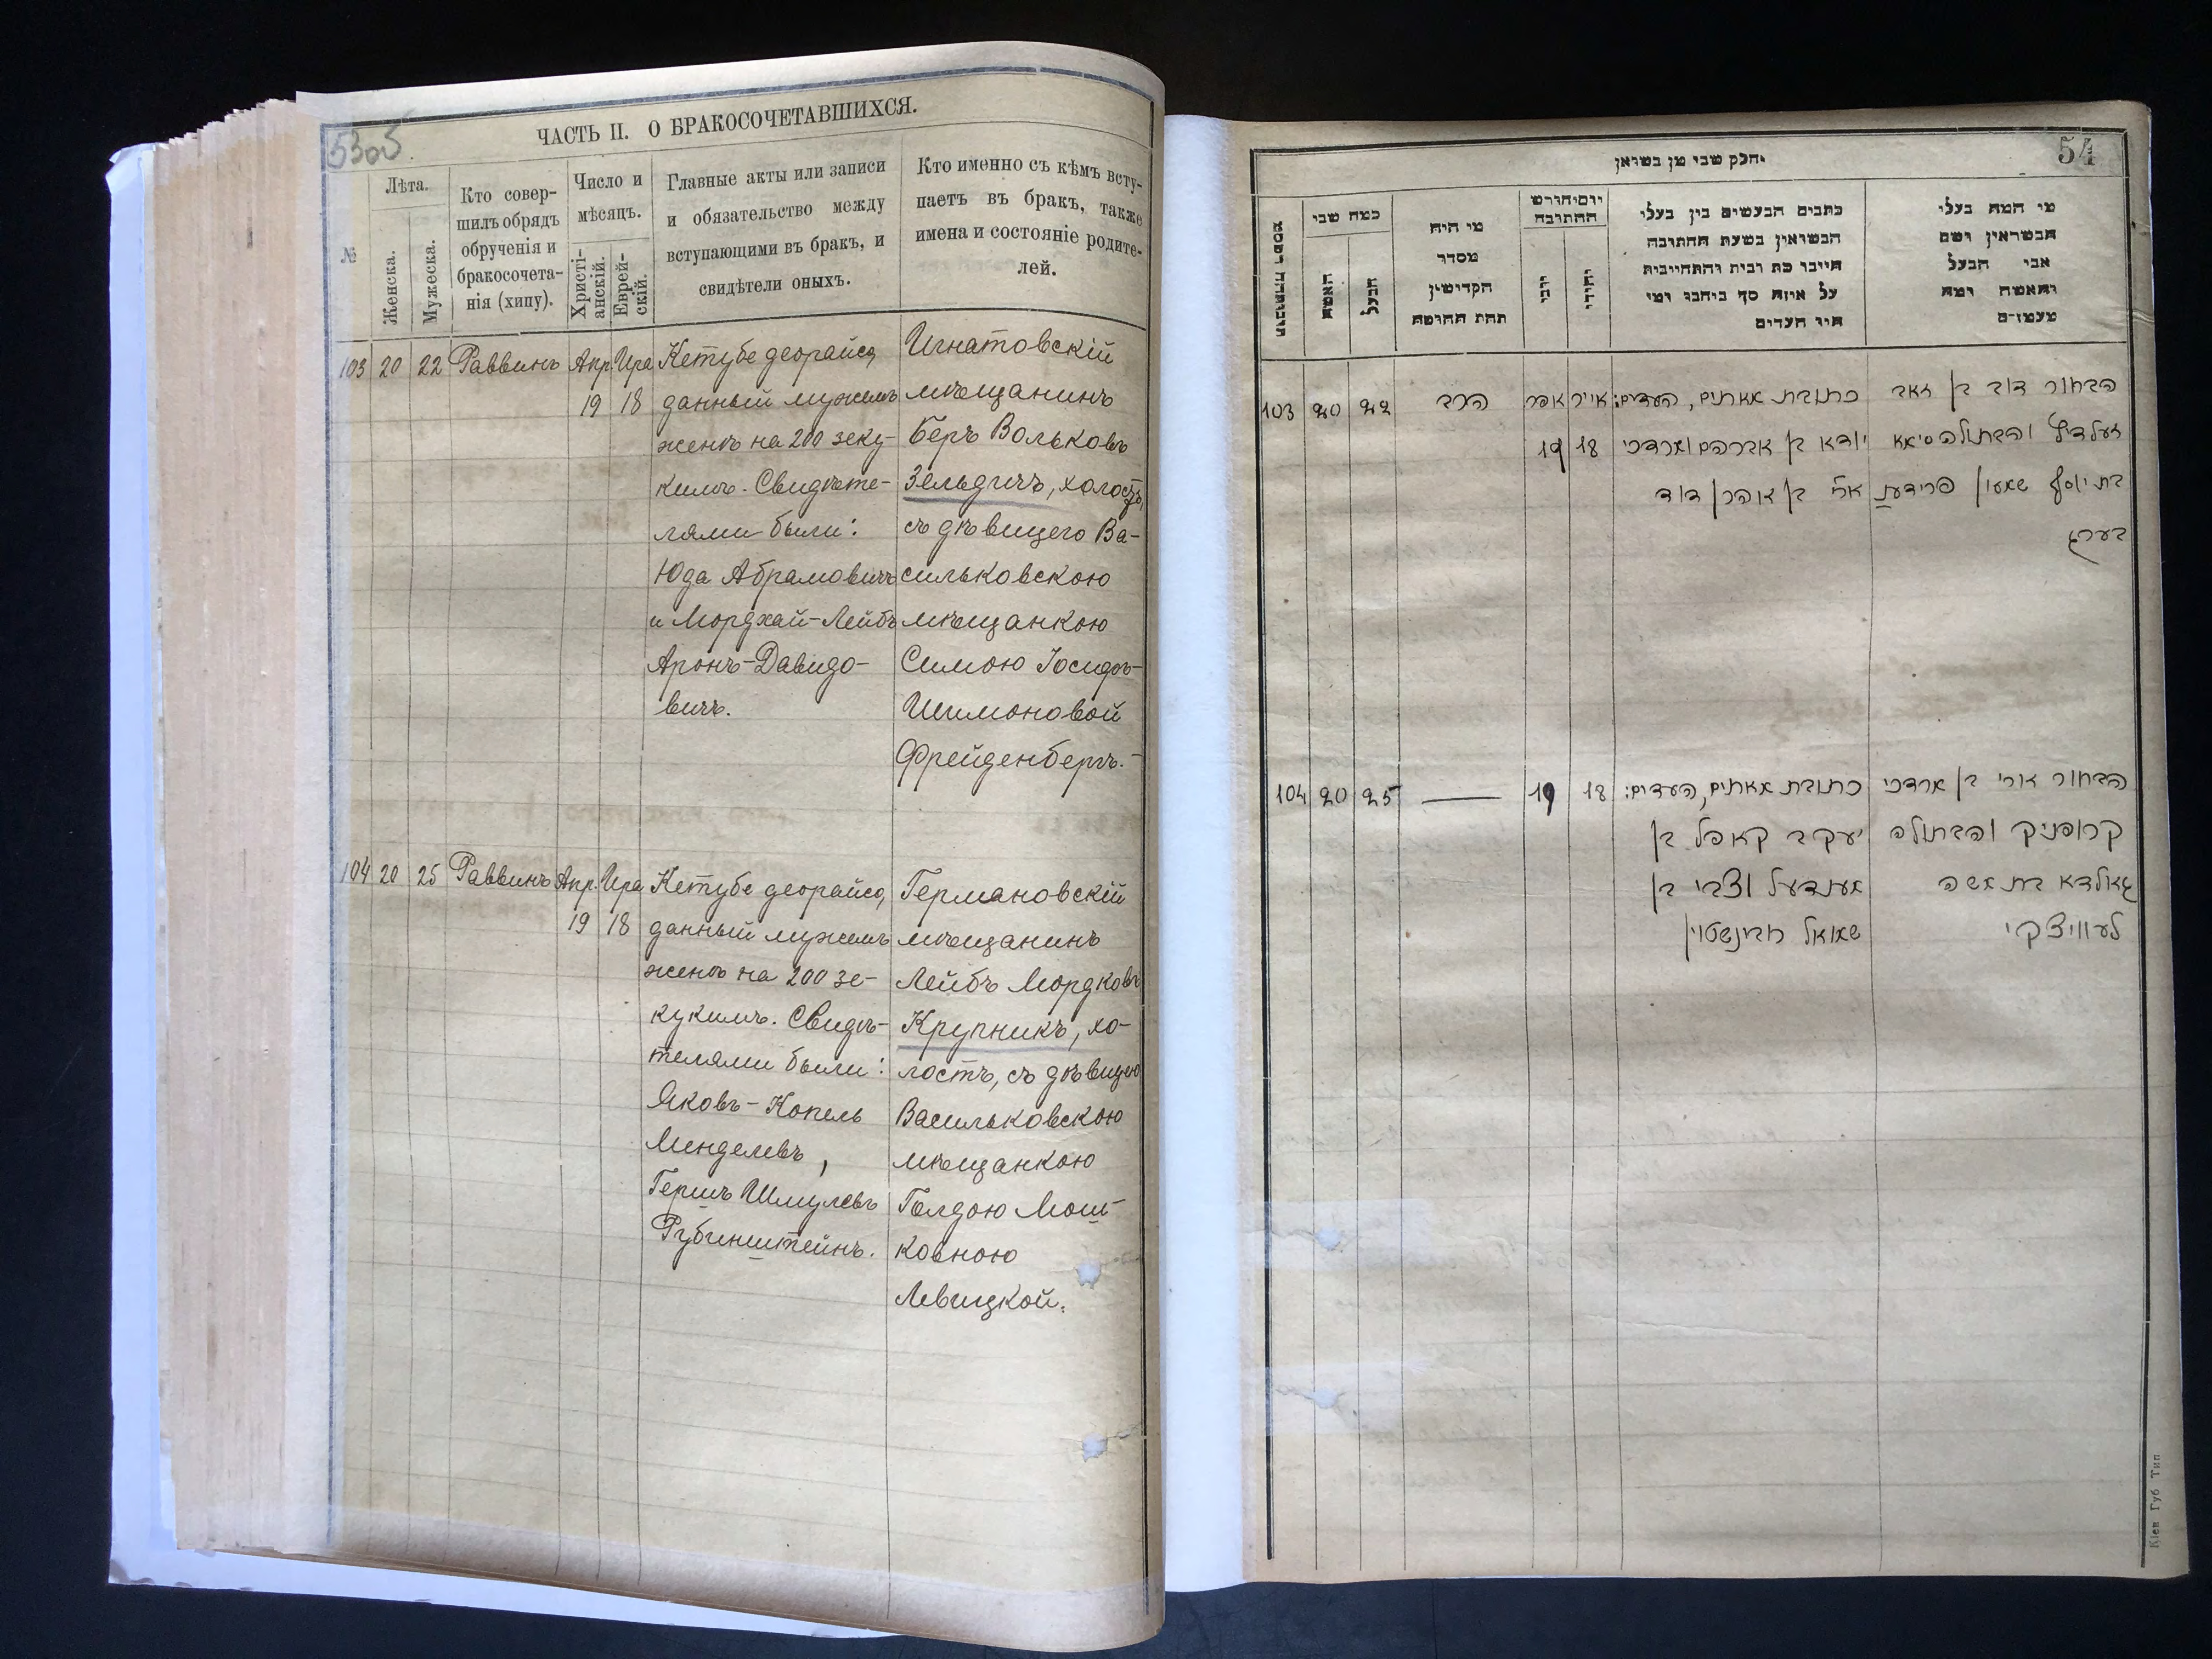 53об.
ЧАСТЬ II. О БРАКОСОЧЕТАВШИХСЯ.
№
Лѣта.
Женска.
Мужеска.
Кто совер-
шилъ обрядъ
обрученія и
бракосочета-
нія (хипу).
Число и
мѣсяцъ.
Христі-
анскій.
Еврей-
скій.
Главные акты или записи
и обязательство между
вступающими въ бракъ, и
свидѣтели оныхъ.
Кто именно съ кѣмъ всту-
паетъ въ бракъ, также
имена и состояніе родите-
лей.
103 20 22 Раввинъ Апр. Ира
19 18
Кетубе деорайса,
данный мужемъ
женѣ на 200 зеку-
кимъ. Свидѣте-
лями были:
Юда Абрамовичъ
и Мордхай-Лейбъ
Аронъ-Давидо-
вичъ.
Игнатовскій
мѣщанинъ
Беръ Вольковъ
Зельдичъ, холостъ,
съ дѣвицего Ва-
сильковскою
мѣщанкою
Симою Іосифъ-
Шимоновой
Фрейденбергъ.-
104 20 25 Раввинъ Апр. Ира
19 18
Кетубе деорайса,
данный мужемъ
женѣ на 200 зе-
кукимъ. Свидѣ-
телями были:
Яковъ-Копель
Менделевъ,
Гершъ Шмулевъ
Рубинштейнъ.
Германовскій
мѣщанинъ
Лейбъ Мордковъ
Крупникъ, хо-
лостъ, съ дѣвицею
Васильковскою
мѣщанкою
Голдою Мош-
ковною
Левицкой.
54
חלק שני מן נשואין
מי המה בעלי
הנשואין ושם
אבי הבעל
והאשה ומה
מעמדם
כתבים הנעשים בין בעלי
הנשואין בשעת החתונה
על איזה סך כיהבו ומי
היו העדים
יום וחודש
החתונה
יהודי
נוצרי
מי היה
מסדר
הקדושין
תחת החופה
כמה שני
הבעל
האשה
103 20 22 הרב אפר אייר
19 18
כתובת מאתים, העדים:
יודא בן אברהם ומרדכי
בן אהרן דוד
הבחור דוב בן זאב
זעלדיץ והבתולה סימא
בת יוסף שמעון פרידענ
בערג
104 20 25 — 19 18
כתובת מאתים, העדים:
יעקב קאפל בן
מענדעל וצבי בן
שמואל רובינשטיין
הבחור ארי בן מרדכי
קרופניק והבתולה
גאולדא בת משה
לעוויצקי
Кіев Губ Тип